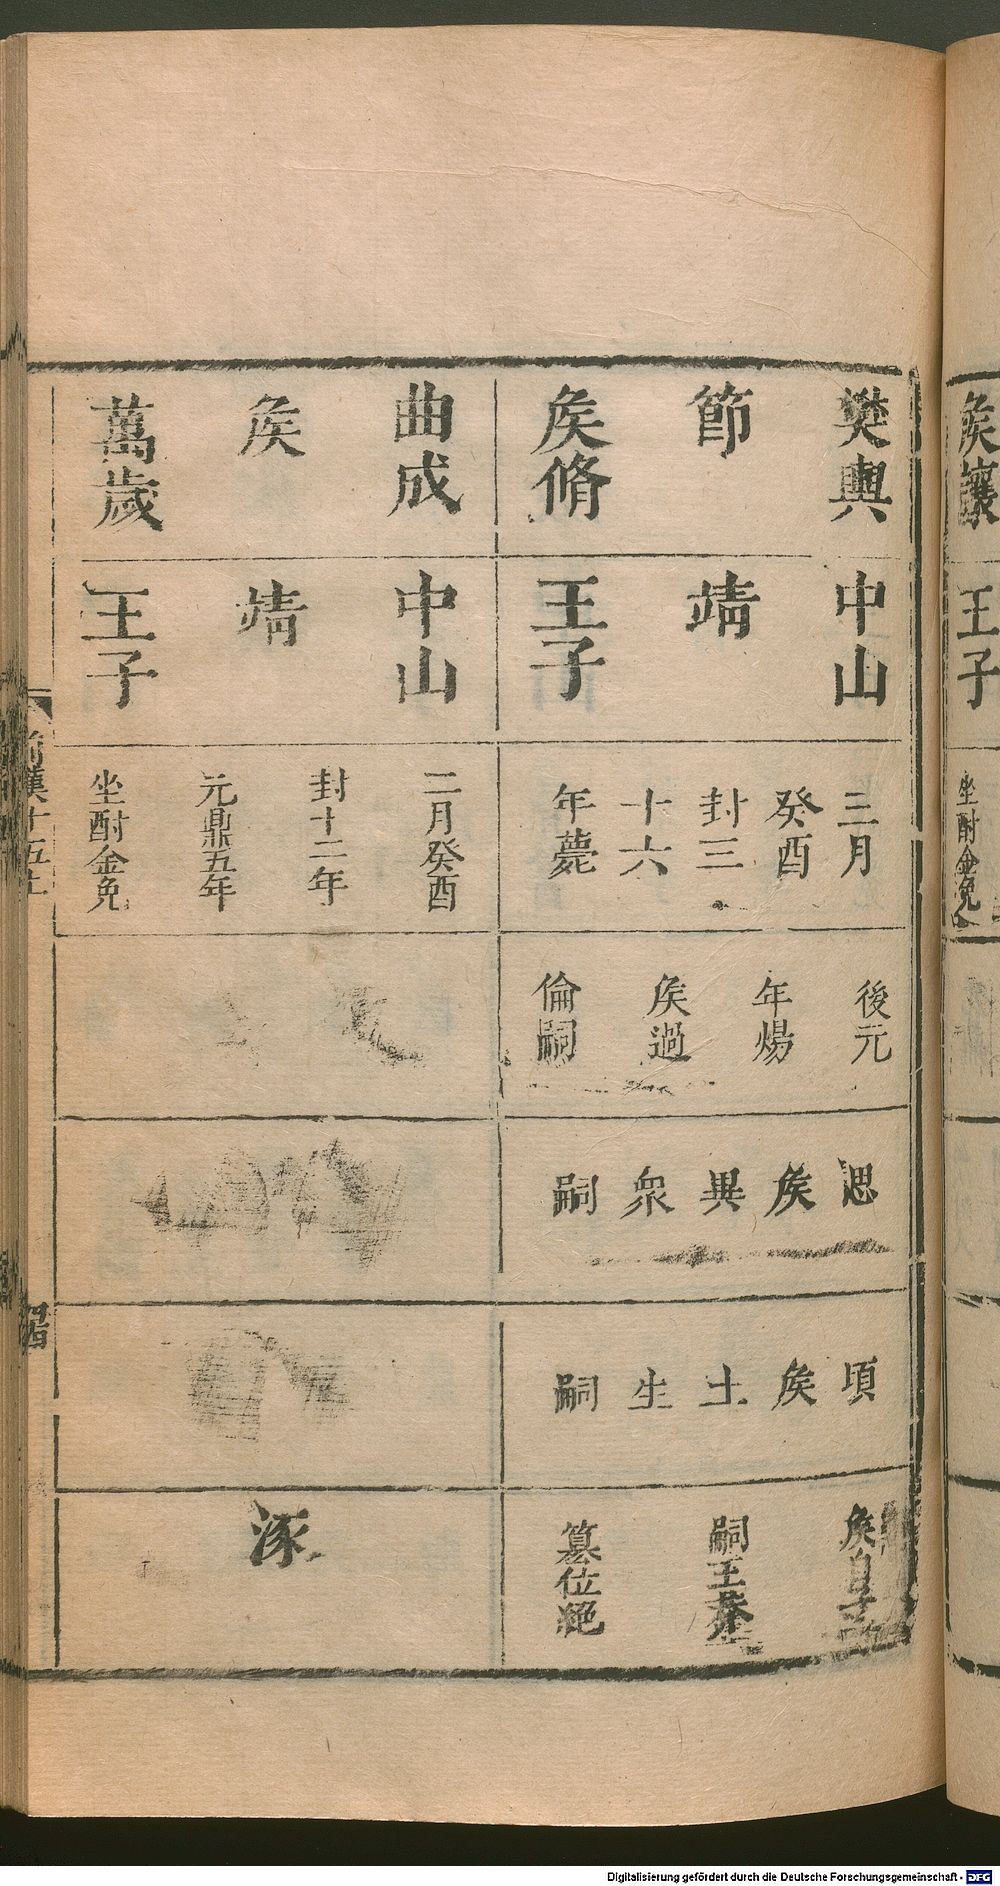 樊輿
節
矦脩
中山
靖
王子
三月
癸酉
封三
十六
年薨
後元
年煬
矦過
倫嗣
思
矦
異
衆
嗣
頃
矦
土
生
嗣
矦自予
嗣王莽
篡位絕
曲成
矦
萬歲
中山
靖
王子
二月癸酉
封十二年
元鼎五年
坐酎金免
涿
前漢十五上
矦讓
王子
坐酎金免
Digitalisierung gefördert durch die Deutsche Forschungsgemeinschaft - DFG